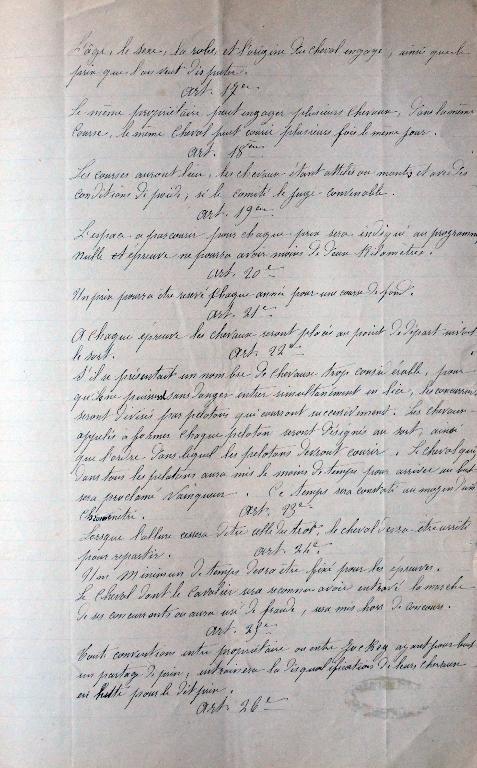 L'âge, le sexe, la robe, et l'origine du cheval engagé, ainsi que le
prix que l'on veut disputer.
Art. 17em
Le même propriétaire peut engager plusieurs chevaux, dans la même
course, le même cheval peut courir plusieurs fois le même jour.
Art. 18em
Les courses auront lieu, les chevaux étant attelés ou montés et avec des
conditions de poids, si le comité le juge convenable.
Art. 19em
L'espace a parcourir pour chaque prix sera indiqué au programme
Nulle épreuve ne pourra avoir moins de deux Kilomètres.
Art. 20e
Un prix pourra être reservé chaque année pour une course de fond.
Art. 21e
A chaque épreuve les chevaux seront placés au point de départ suivant
le sort. Art. 22e
S'il se présentait un nombre de chevaux trop considérable, pour
qu'ils puissent sans danger entrer simultanément en lice, les concurrents
seront divisés par pelotons qui courront successivement. Les chevaux
appelés a former chaque peloton seront désignés au sort, ainsi
que l'ordre dans lequel les pelotons devront courir. Le cheval qui
dans tous les pelotons aura mis le moins de temps pour arriver au but
sera proclamé vainqueur. Ce temps sera constaté au moyen d'un
Chronomètre. Art. 23e
Lorsque l'allure cessera d'être celle du trot, le cheval devra être arrêté
pour repartir. Art. 24e
Un Minimum de temps devra être fixé pour les épreuves.
Le Cheval dont le Cavalier sera reconnu avoir entravé la marche
de ses concurrants ou aura usé de fraude, sera mis hors de concours.
Art. 25e
Toute convention entre propriétaire ou entre Jockey ayant pour but
un partage de prix, entrainera la disqualification de leurs chevaux
en lutte pour le dit prix.
Art. 26e